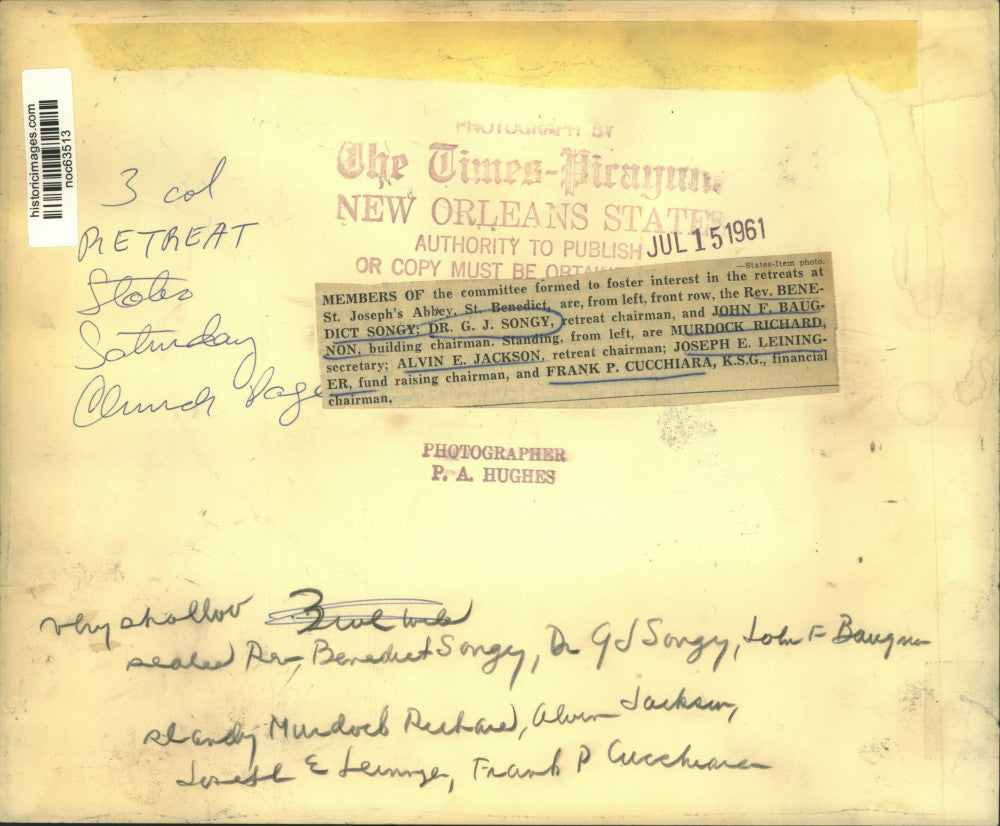 historicimages.com
noc63513
PHOTOGRAPH BY
The Times-Picayune
NEW ORLEANS STATES
AUTHORITY TO PUBLISH
OR COPY MUST BE OBTAIN
JUL 15 1961
3 col
RETREAT
States
Saturday
Church Page
—States-Item photo.
MEMBERS OF the committee formed to foster interest in the retreats at
St. Joseph's Abbey, St. Benedict, are, from left, front row, the Rev. BENE-
DICT SONGY; DR. G. J. SONGY, retreat chairman, and JOHN F. BAUG-
NON, building chairman. Standing, from left, are MURDOCK RICHARD,
secretary; ALVIN E. JACKSON, retreat chairman; JOSEPH E. LEINING-
ER, fund raising chairman, and FRANK P. CUCCHIARA, K.S.G., financial
chairman.
PHOTOGRAPHER
P. A. HUGHES
very shallow 3
seated Rev Benedict Songy, Dr G J Songy, John F Baugnon
standing Murdock Richard, Alvin Jackson,
Joseph E Leininger, Frank P Cucchiara